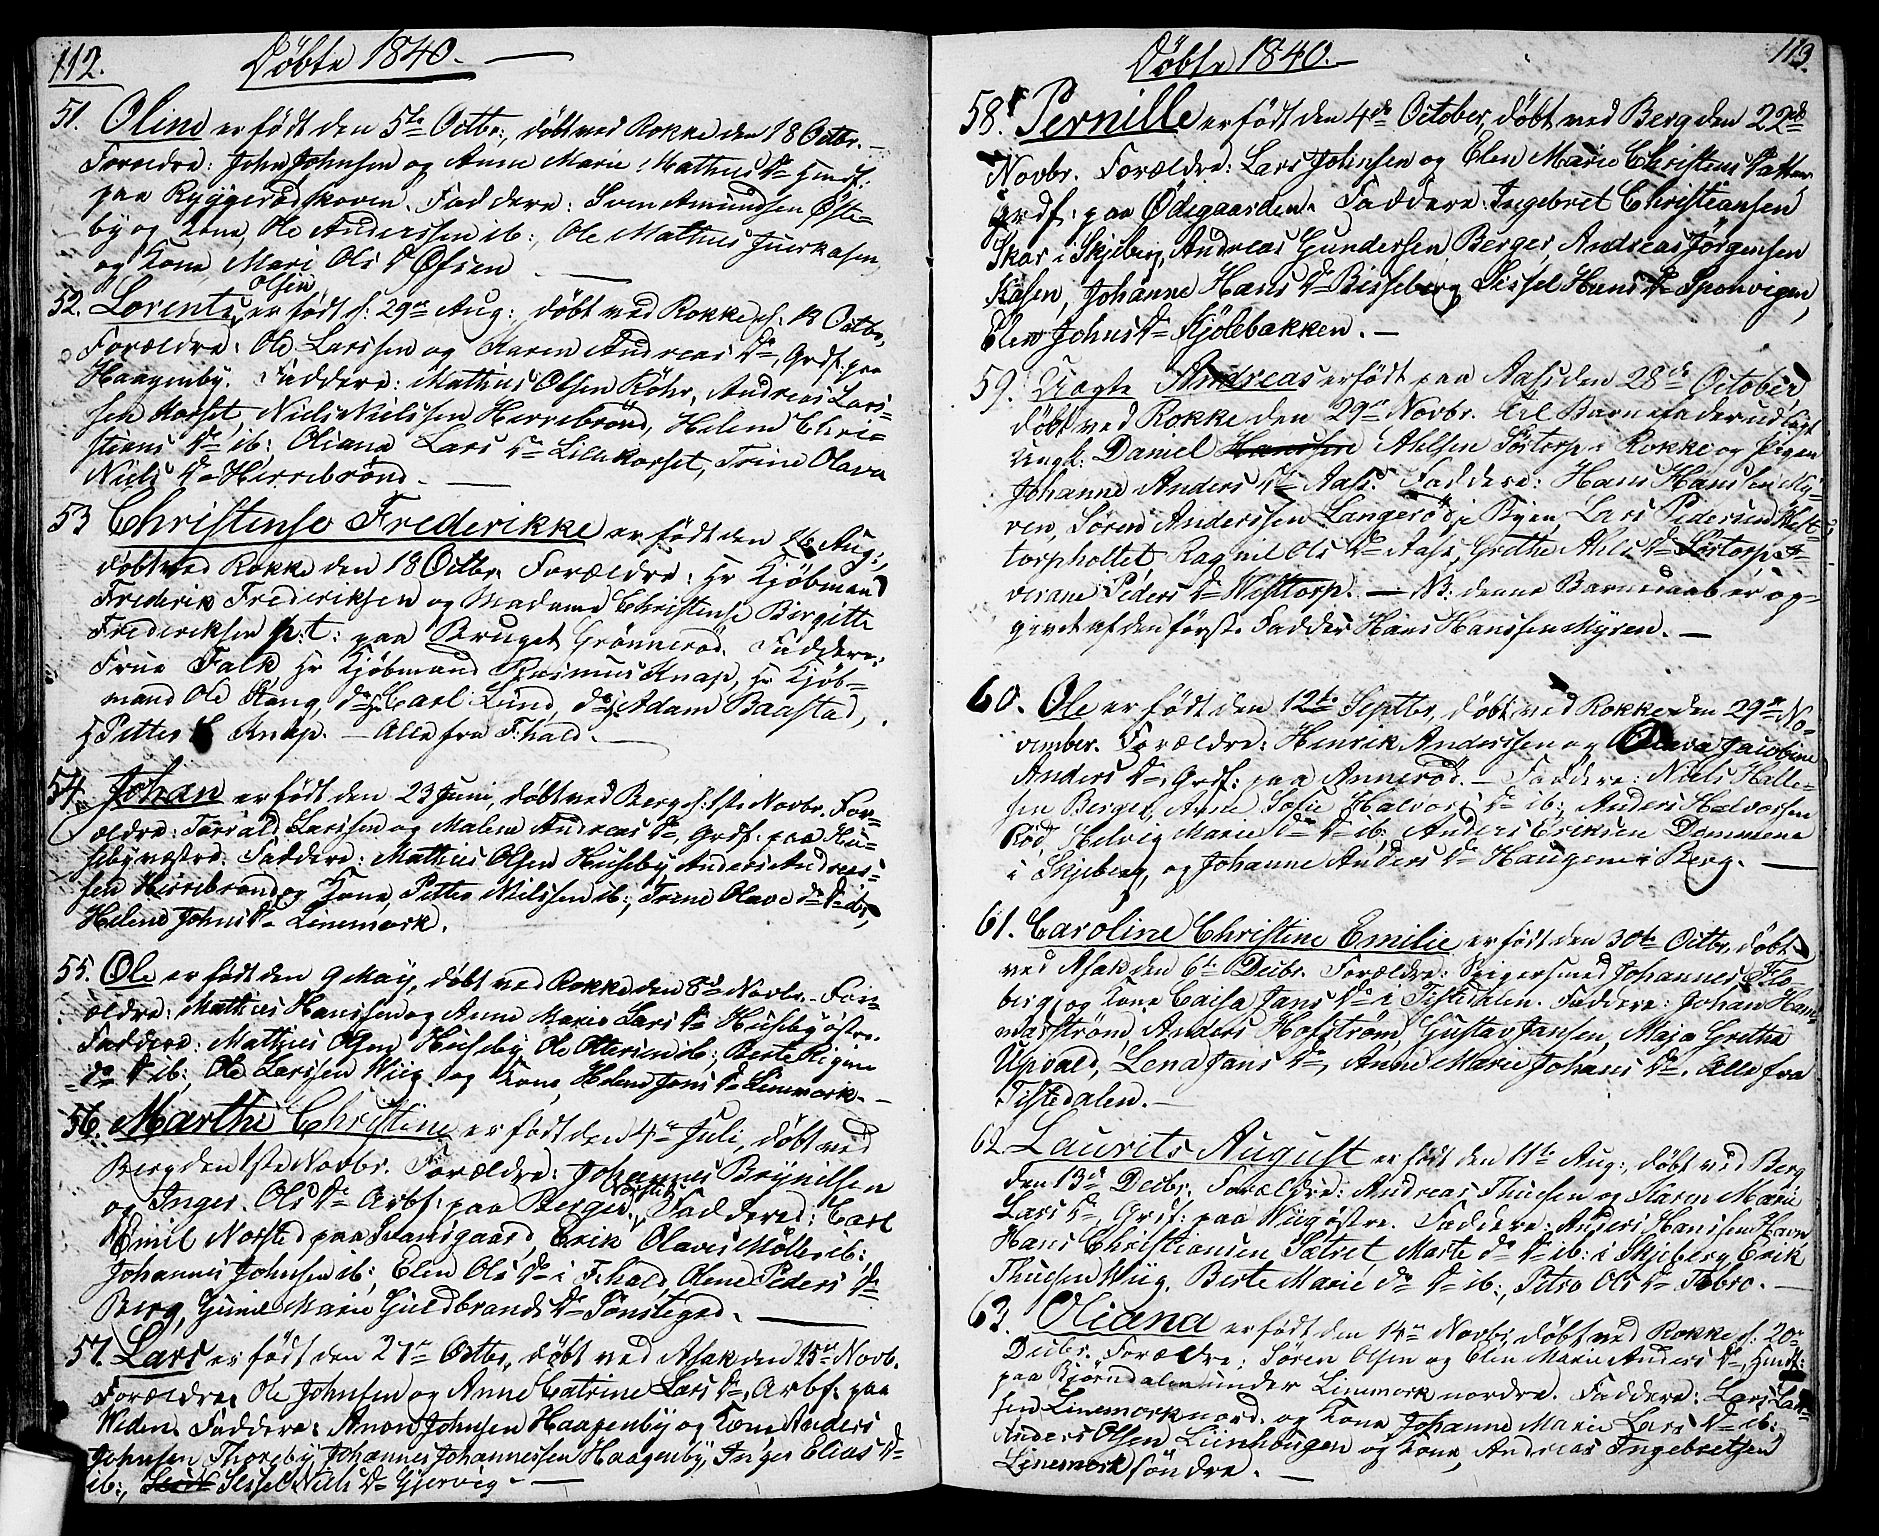 112.
Döbte 1840.
51. Oline er födt den 5te Octbr:, döbt ved Rokke den 18 Octbr. –
Forældre: John Johnsen og Anne Marie Mathiis Dr Huusf:
paa Ryggerödskoven. Faddere: Sven Amundsen Öste-
by og Kone, Ole Anderssen ib:, Ole Mathiis
og Kone, Mari Ols Dr Ofsen
52. Lorents Olsen, er födt d. 29de Aug:, döbt ved Rokke d. 18 Octbr,
Forældre: Ole Larssen og Karen Andreas Dr, Grdf: paa
Haagenby. Faddere: Mathiis Olsen Röhr, Andreas Lars-
sen Korset, Niels Nielssen Herrebrönd, Helene Chri-
stians Dr ib: Oliana Lars Dr Lillekorset, Trine Olava
Niels Dr Herrebrönd.
53 Christense Frederikke er födt den 16 Aug:,
döbt ved Rokke den 18 Octbr. Forældre: Hr Kjöbmand
Frederik Frederiksen og Madame Christense Birgitte
Frederiksen p:t: paa Bruget Grönneröd. Faddere:
Frue Falk Hr Kjöbmand Rasmus Knap, Hr Kjöb-
mand Ole Stang, do Carl Lund, do Adam Baastad,
H Petter Knap. – Alle fra Fhald. –
54. Johan er födt den 23 Juni, döbt ved Berg d: 1ste Novbr. For-
ældre: Torvald Larssen og Malene Andreas Dr Grdf: paa Hu-
seby vestre. Faddere: Mathiis Olsen Huseby, Anders Andreas-
sen Herrebrönd og Kone, Petter Nielssen ib:, Trine Olave do Dr ib:,
Helene Johns Dr Linemork.
55. Ole er födt den 9 May, döbt ved Rokke den 8de Novbr. For-
ældre: Mathiis Hanssen og Anne Marie Lars Dr Huseby östre.
Faddere: Mathiis Olsen Huseby, Ole Ottersen ib:, Berte Regine
do Dr ib:, Ole Larssen Wiig og Kone, Helene Jens Dr Linemork. –
56. Marthe Christine er födt den 4de Juli, döbt ved
Berg den 1ste Novbr. Forældre: Johannes Brynilsen
og Inger Ols Dr Arbf: paa Berger. Faddere: Carl
Emil Norsted paa Framsgaard, Erik Olaves Möller ib:,
Johannes Johnsen ib:, Elen Ols Dr i Fhald, Olene Peders Dr
Berg, Gunil Marie Guldbrands Dr Tönsleged. –
57. Lars er födt den 27de Octbr, döbt ved Asak den 15de Novb.
Forældre: Ole Johnsen og Anne Catrine Lars Dr, Arbf: paa
Weden. Faddere: Anon Johnsen Haagenby og Kone Anders
Johnsen Thoreby, Johannes Johannessen Haagenby, Inger Elias Dr
ib:, Sissel Niels Dr Gjervig –
113.
Döbte 1840. –
58. Pernille er födt den 4de October, döbt ved Berg den 22de
Novbr. Forældre: Lars Johnsen og Elen Marie Christens Datter
Grdf: paa Ödegaarden. Faddere: Ingebret Christiansen
Skar i Skjeberg, Andreas Gundersen Berger, Andreas Jörgensen
Kasen, Johanne Hans Dr Bisseberg, Sissel Hans Dr Sponvigen,
Elen Johns Dr Kjölebakken. –
59. Uægte Andreas er födt paa Aas den 28de October,
döbt ved Rokke den 29de Novbr. Til Barnefader udlagt
Ungk: Daniel Ahlsen Sörtorp i Rokke og Pigen
Johanne Anders Dr Aas. Faddere: Hans Hanssen My-
ren, Sören Anderssen Langeröd i Byen, Lars Pedersen West-
torpholtet, Ragnil Ols Dr Aass, Grethe Ahls Dr Sörtorp, A-
verane Peders Dr Westtorp. – NB: denne Barnedaab er op-
givet af den förste Fadder Hans Hanssen Myren. –
60. Ole er födt den 12te Septbr, döbt ved Rokke den 29de No-
vember. Forældre: Henrik Anderssen og Olava Jacobine
Anders Dr Grdf: paa Anneröd. – Faddere: Niels Halle-
sen Berger, Anne Sofie Halvors Dr ib:, Anders Halvorssen
Röd, Helvig Marie do Dr ib:, Anders Eriksen Dammene
i Skjeberg, og Johanne Anders Dr Haugen i Berg. –
61. Caroline Christine Emilie er födt den 30te Octbr, döbt
ved Asak den 6te Decbr. Forældre: Spigersmed Johannes Flo-
berg og Kone Caisa Jans Dr i Tistedalen. Faddere: Johan Ham-
marström, Anders Hofström, Gustav Jansen, Maja Grethe
Upvald, Lena Jans Dr, Anne Marie Johans Dr. Alle fra
Tistedalen. –
62. Laurits August er födt den 11te Aug:, döbt ved Berg
den 13de Decbr. Forældre: Andreas Thuesen og Karen Marie
Lars Dr, Grdf: paa Wiig östre. Faddere: Anders Hanssen Havn
Hans Christiansen Sætret, Marte do Dr ib: i Skjeberg, Erik
Thuesen Wiig, Berte Marie do Dr ib:, Petro Ols Dr Tobro. –
63. Oliana er födt den 14de Novbr, döbt ved Rokke d: 20de
Decbr. Forældre: Sören Olsen og Elen Marie Anders Dr, Huusf:
paa Björndalen under Linemork nordre. Faddere: Lars Lar-
sen Linemork nord. og Kone, Johanne Marie Lars Dr ib:,
Anders Olsen Liinhougen og Kone, Andreas Ingebretsen
Linemork söndre. –